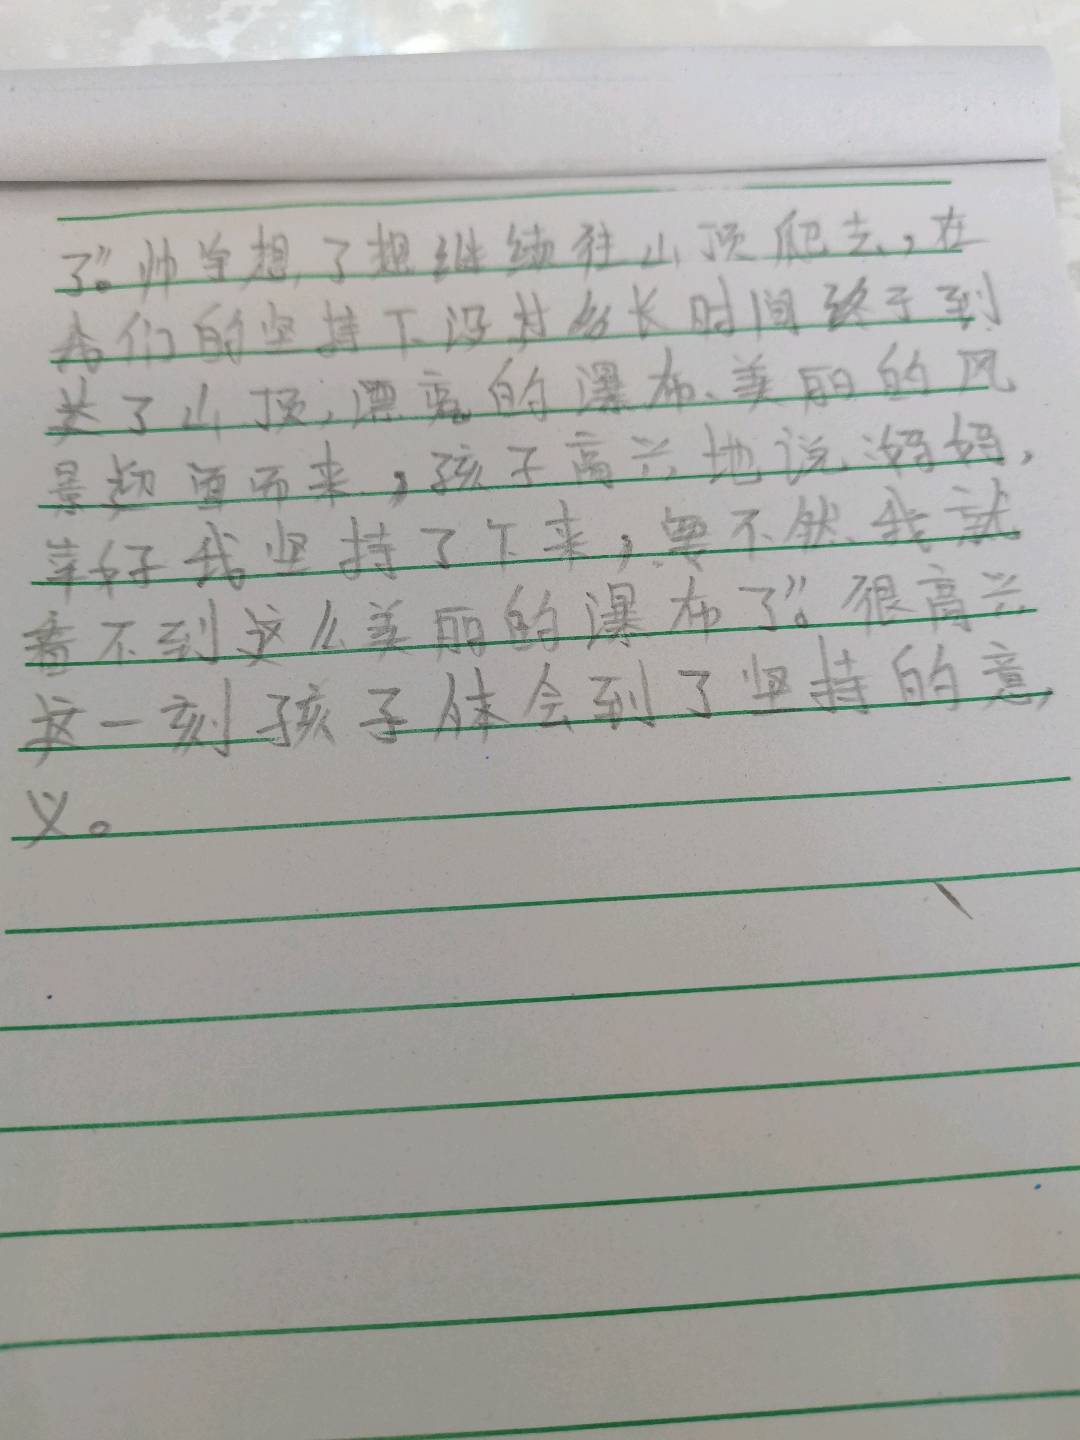 了”。帅为想了想继续往山顶爬去,在
我们的坚持下没过多长时间终于到
达了山顶,漂亮的瀑布、美丽的风
景迎面而来,孩子高兴地说:妈妈,
幸好我坚持了下来,要不然、我就
看不到这么美丽的瀑布了”。很高兴
这一刻孩子体会到了坚持的意
义。